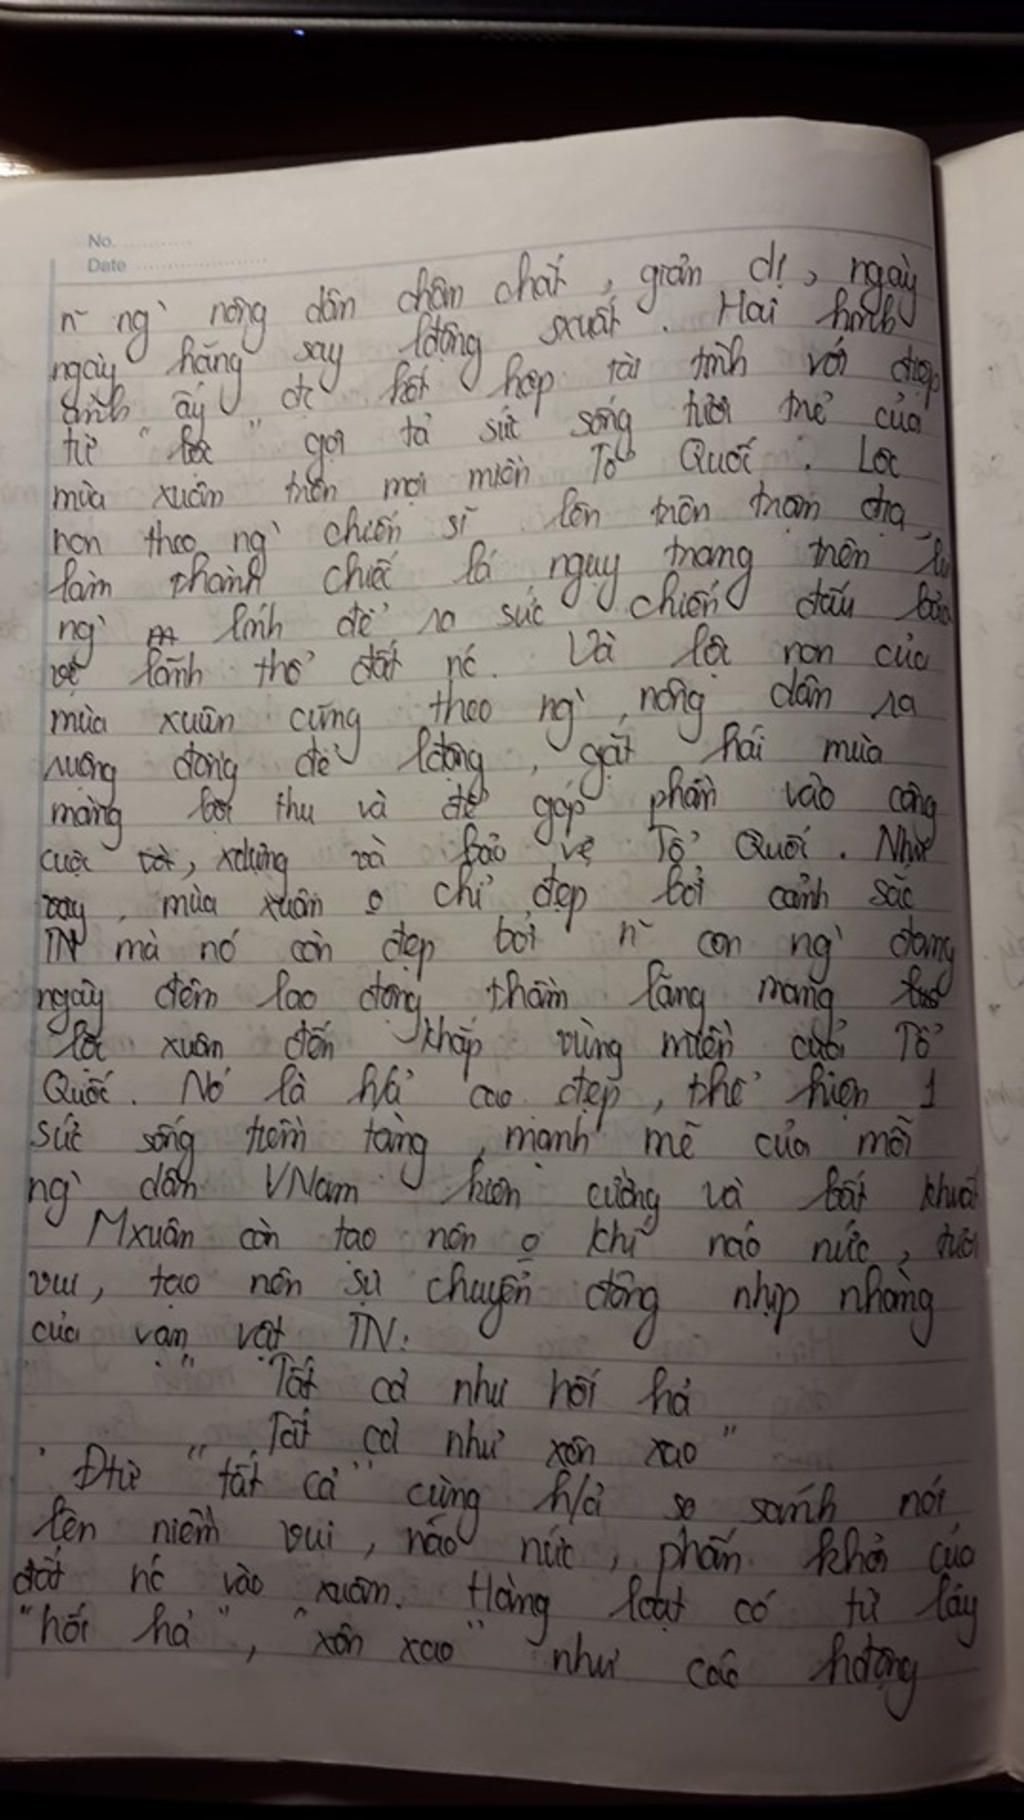 No.
Date
n~ ng` nông dân chân chất, giản dị, ngày
ngày hăng say lđộng sxuất. Hai hình
ảnh ấy đc kết hợp tài tình với điệp
từ "lộc" gợi tả sức sống tươi trẻ của
mùa xuân trên mọi miền Tổ Quốc. Lộc
non theo ng` chiến sĩ lên trên trận địa,
làm thành chiếc lá ngụy trang trên
ng` lính để ra sức chiến đấu bảo
vệ lãnh thổ đất nc. Và lộc non của
mùa xuân cũng theo ng` nông dân ra
ruộng đồng để lđộng, gặt hái mùa
màng bội thu và để góp phần vào công
cuộc, xdựng và bảo vệ Tổ Quốc. Như
vậy, mùa xuân o chỉ đẹp bởi cảnh sắc
TN mà nó còn đẹp bởi n~ con ng` đang
ngày đêm lao động thầm lặng mang
lộc xuân đến khắp vùng miền của Tổ
Quốc. Nó là h/ả cao đẹp, thể hiện 1
sức sống tiềm tàng, mạnh mẽ của mỗi
ng` dân VNam kiên cường và bất khuất
Mxuân còn tạo nên o khí náo nức, tươi
vui, tạo nên sự chuyển động nhịp nhàng
của vạn vật TN:
"Tất cả như hối hả
Tất cả như xôn xao"
Đtừ "tất cả" cùng h/ả so sánh nói
lên niềm vui, náo nức, phấn khởi của
đất nc vào xuân. Hàng loạt có từ láy
"hối hả", "xôn xao" như các hđộng